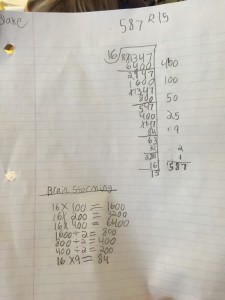 587 R15
16)9347
6400 400
2947
1600 100
1347
800 50
547
400 25
147
84 9
63
32 2
31
16 1
15 587
Brain storming
16 x 100 = 1600
16 x 200 = 3200
16 x 400 = 6400
1600 ÷ 2 = 800
800 ÷ 2 = 400
400 ÷ 2 = 200
16 x 9 = 84